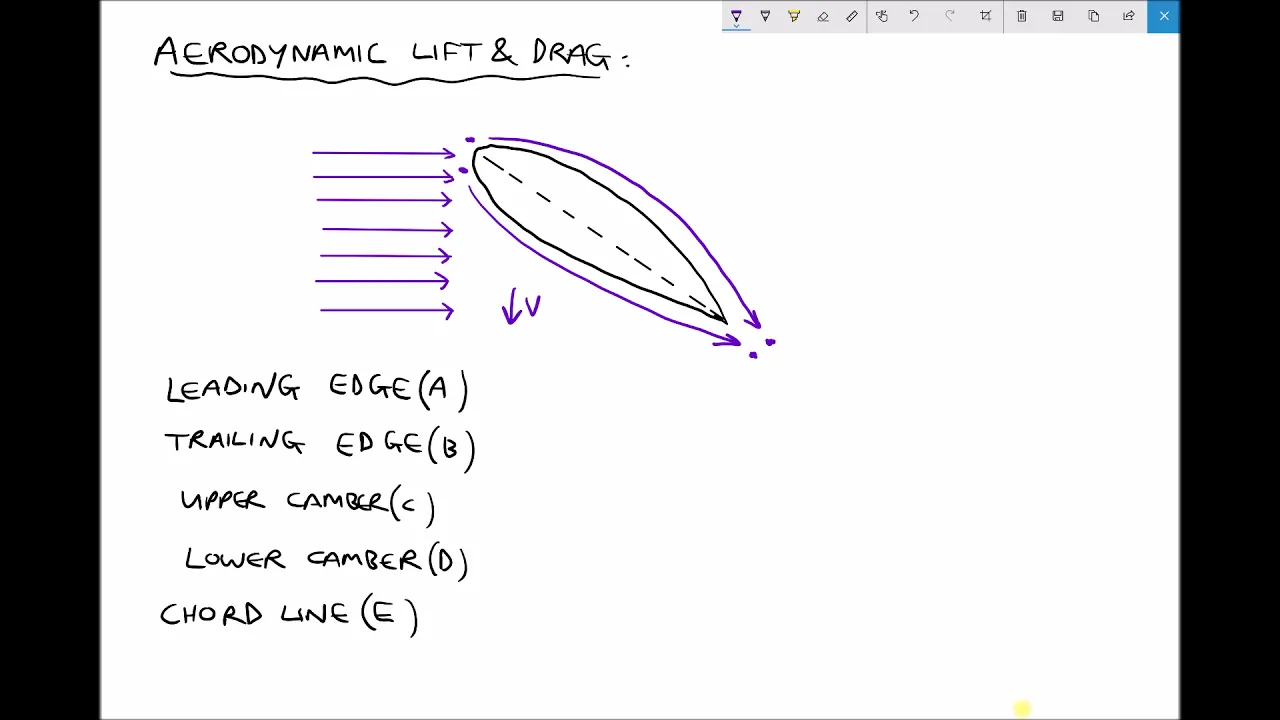 AERODYNAMIC LIFT & DRAG:
V
LEADING EDGE (A)
TRAILING EDGE (B)
UPPER CAMBER (C)
LOWER CAMBER (D)
CHORD LINE (E)